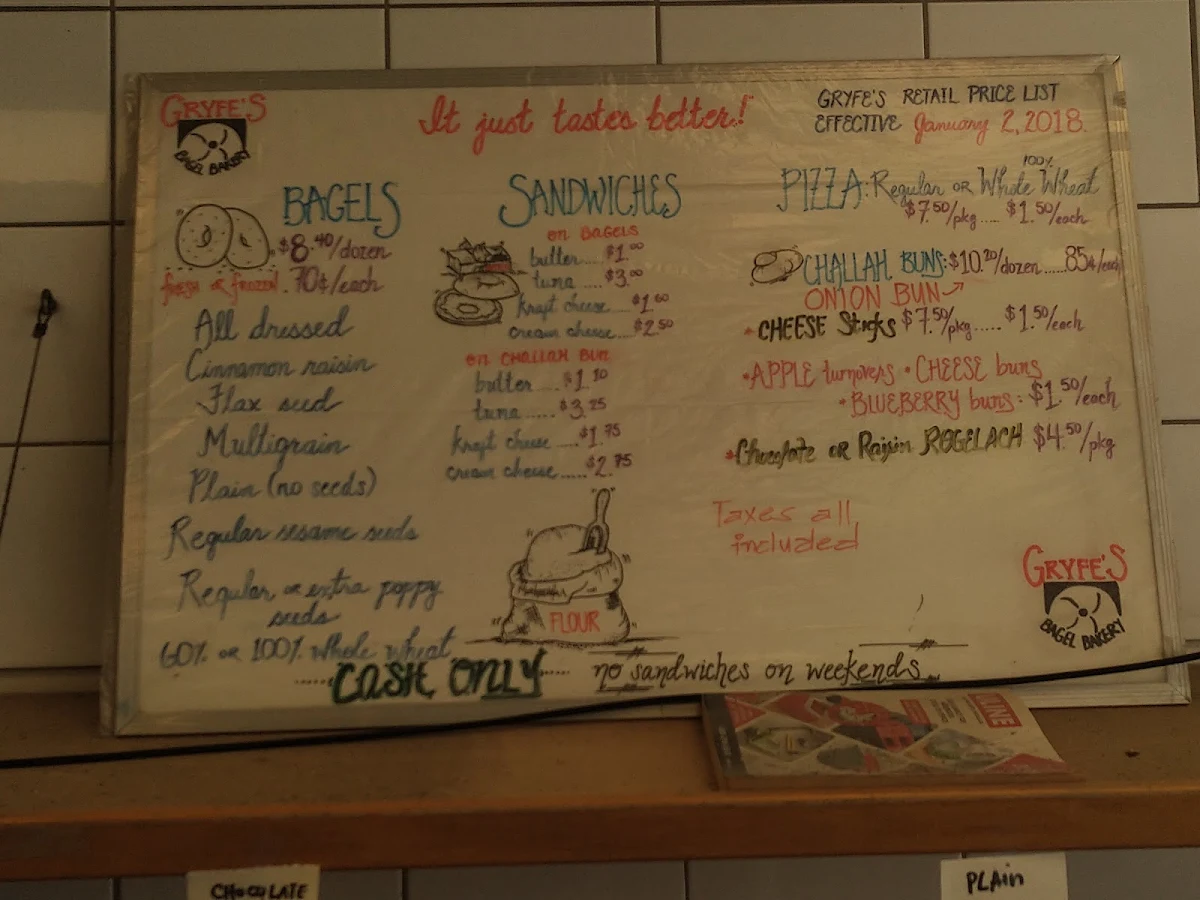 GRYFE'S
BAGEL BAKERY
It just tastes better!
GRYFE'S RETAIL PRICE LIST
EFFECTIVE January 2, 2018.
BAGELS
$8.40/dozen
fresh or frozen. 70¢/each
All dressed
Cinnamon raisin
Flax seed
Multigrain
Plain (no seeds)
Regular sesame seeds
Regular or extra poppy
seeds
60% or 100% Whole wheat
SANDWICHES
on BAGELS
butter....$1.00
tuna....$3.00
kraft cheese...$1.60
cream cheese...$2.50
on CHALLAH BUN
butter....$1.10
tuna.....$3.25
kraft cheese....$1.75
cream cheese.....$2.75
FLOUR
PIZZA: Regular OR 100% Whole Wheat
$7.50/pkg..... $1.50/each
CHALLAH BUNS: $10.20/dozen.....85¢/each
ONION BUN
• CHEESE Sticks $7.50/pkg..... $1.50/each
• APPLE turnovers • CHEESE buns
• BLUEBERRY buns: $1.50/each
• Chocolate OR Raisin ROGELACH $4.50/pkg
Taxes all
included
GRYFE'S
BAGEL BAKERY
.....CASH ONLY..... no sandwiches on weekends
CHOCOLATE
PLAIN